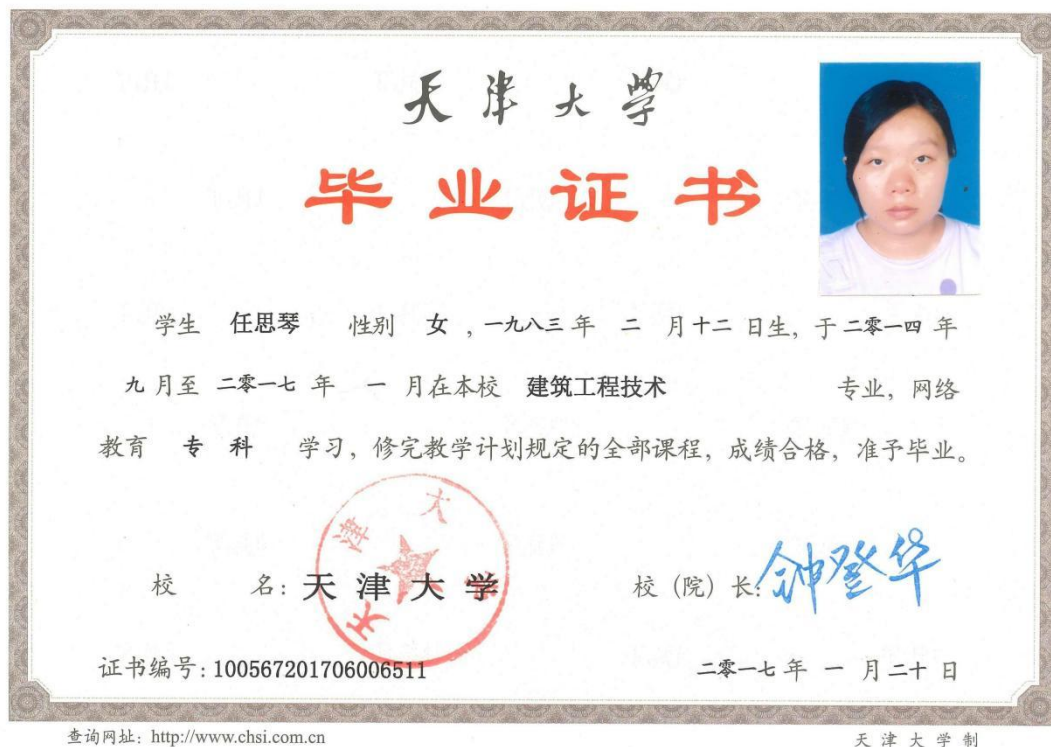 天津大学
毕业证书
学生 任思琴 性别 女 ，一九八三年 二 月十二日生，于二零一四年
九月至 二零一七 年 一 月在本校 建筑工程技术 专业，网络
教育 专 科 学习，修完教学计划规定的全部课程，成绩合格，准予毕业。
天津大学
校 名：天津大学 校（院）长：钟登华
证书编号：100567201706006511 二零一七年 一 月二十日
查询网址：http://www.chsi.com.cn 天津大学制